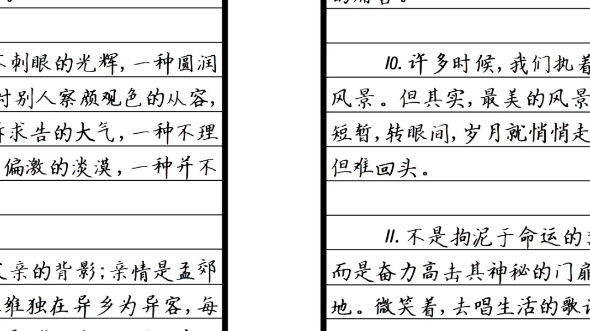 刺眼的光辉，一种圆润
别人察颜观色的从容，
求告的大气，一种不理
偏激的淡漠，一种并不
亲的背影；亲情是孟郊
维独在异乡为异客，每
10. 许多时候，我们执着
风景。但其实，最美的风景
短暂，转眼间，岁月就悄悄走
但难回头。
11. 不是拘泥于命运的
而是奋力高击其神秘的门扉
地。微笑着，去唱生活的歌